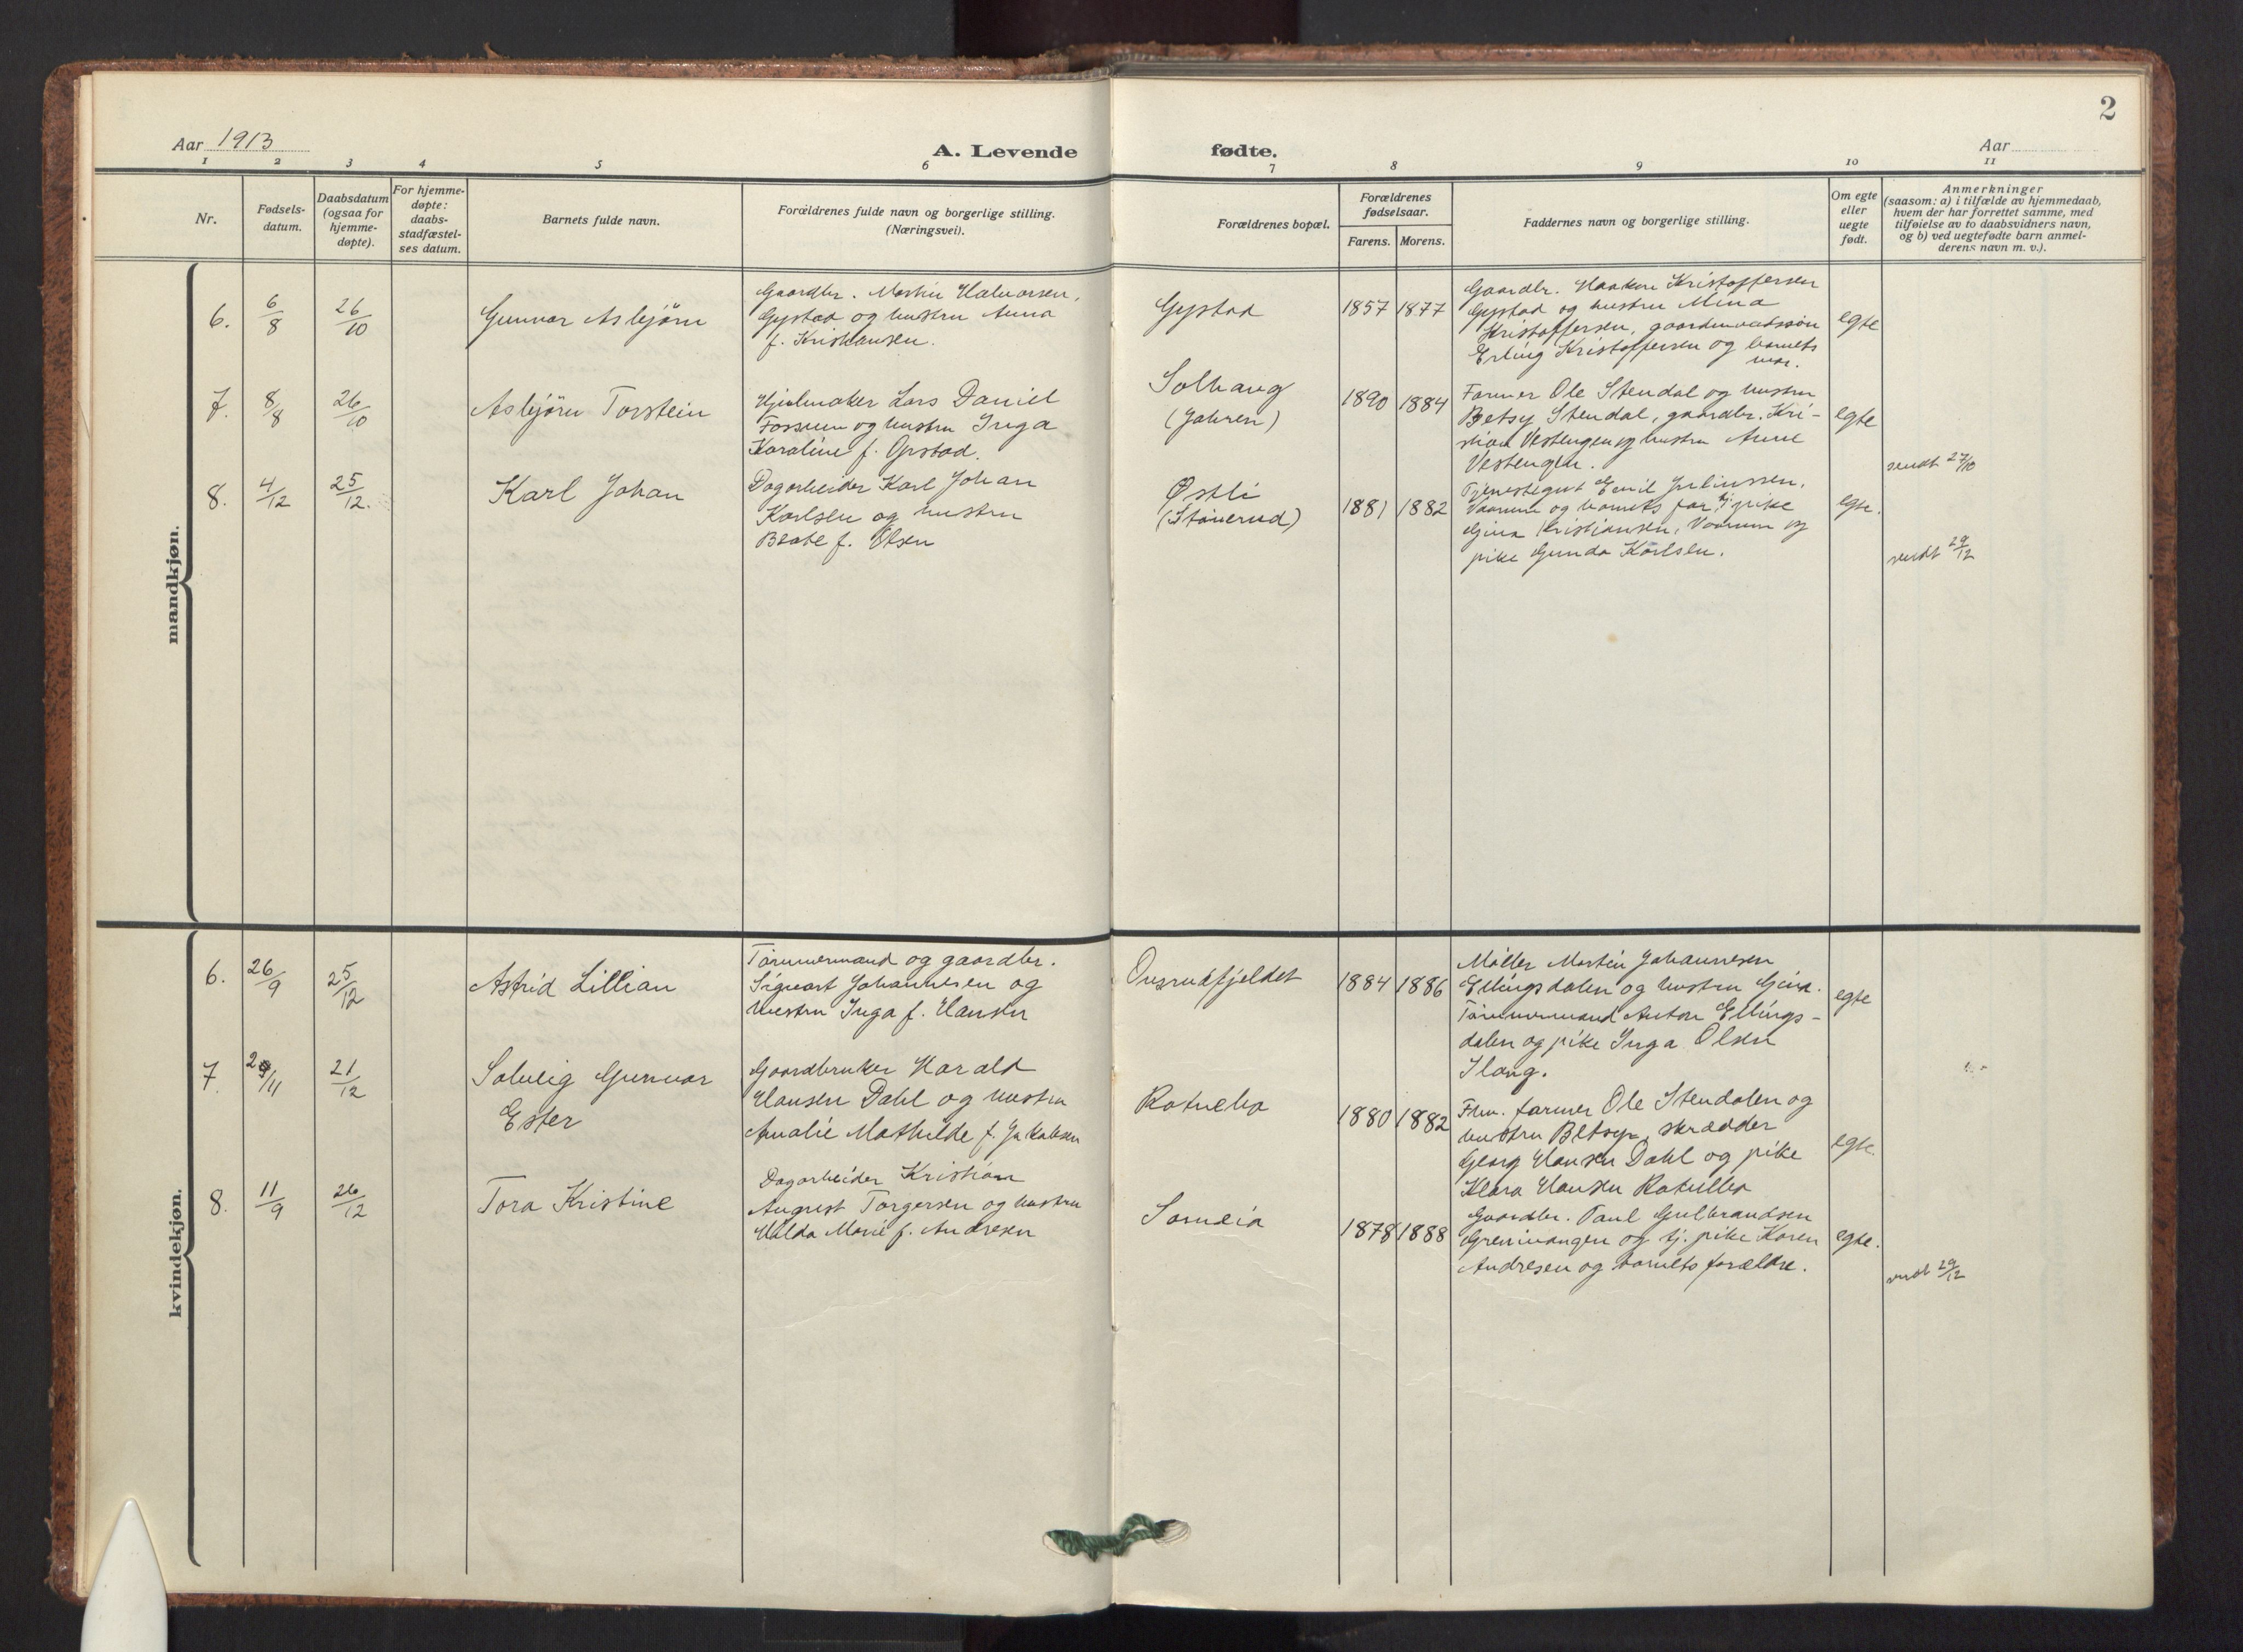 2
Aar 1913
A. Levende
fødte.
Aar
1 2 3 4 5 6 7 8 9 10 11
Nr.
Fødsels-
datum.
Daabsdatum
(ogsaa for
hjemme-
døpte).
For hjemme-
døpte:
daabs-
stadfæstel-
ses datum.
Barnets fulde navn.
Forældrenes fulde navn og borgerlige stilling.
(Næringsvei).
Forældrenes bopæl.
Forældrenes
fødselsaar.
Farens. Morens.
Faddernes navn og borgerlige stilling.
Om egte
eller
uegte
født.
Anmerkninger
(saasom: a) i tilfælde av hjemmedaab,
hvem der har forrettet samme, med
tilføielse av to daabsvidners navn,
og b) ved uegtefødte barn anmel-
derens navn m. v.).
mandkjøn.
6.
6/8
26/10
Gunnar Asbjörn
Gaardbr. Martin Halvorsen,
Gystad og hustru Anna
f. Kristiansen.
Gystad
1857 1877
Gaardbr. Haakon Kristoffersen
Gystad og hustru Mina
Kristoffersen, gaardmandssøn
Erling Kristoffersen og barnets
mor.
egte
7.
8/8
26/10
Asbjörn Torstein
Hjulmaker Lars Daniel
Fossum og hustru Inga
Karoline f. Opstad.
Solhaug
(Jahren)
1890 1884
Farmer Ole Stendal og hustru
Betsy Stendal, gaardbr. Kri-
stian Vestengen og hustru Anne
Vestengen.
egte
sendt 27/10
8.
4/12
25/12.
Karl Johan
Dagarbeider Karl Johan
Karlsen og hustru
Beate f. Olsen
Østli
(Stöverud)
1881 1882
Tjenestegut Emil Juliussen,
Vaarum og barnets far, tj. pike
Gina Kristiansen, Vaarum og
pike Gunda Karlsen.
egte.
sendt 29/12
kvindekjøn.
6.
26/9
25/12
Astrid Lillian
Tömmermand og gaardbr.
Sigvart Johannesen og
hustru Inga f. Hansen
Onsrudfjeldet
1884 1886
Möller Martin Johannesen
Ellingsdalen og hustru Gina.
Tömmermand Anton Ellings-
dalen og pike Inga Olsen
Ilaug.
egte
7.
29/11
21/12
Solveig Gunvor
Ester
Gaardbruker Harald
Hansen Dahl og hustru
Amalie Mathilde f. Jakobsen
Rotnebo
1880 1882
Fhv. farmer Ole Stendalen og
hustru Betsy, skrædder
Georg Hansen Dahl og pike
Klara Hansen Rotnebo
egte
8.
11/9
26/12
Tora Kristine
Dagarbeider Kristian
August Torgersen og hustru
Hilda Marie f. Andresen
1878 1888
Gaardbr. Paul Gulbrandsen
Grenivangen og tj. pike Karen
Andresen og barnets forældre.
egte.
sendt 29/12